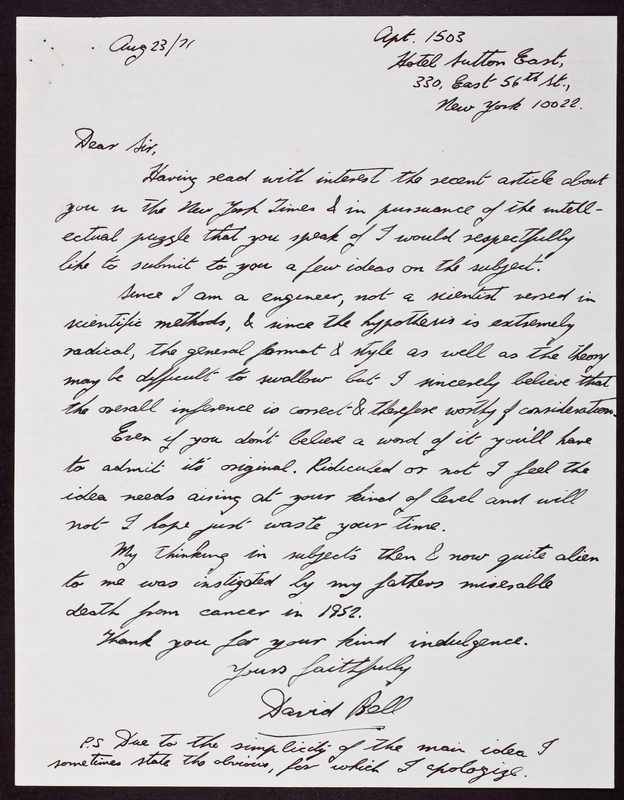 Aug 23/71
Apt. 1503
Hotel Sutton East,
330, East 56th St.,
New York 10022.
Dear Sir,
Having read with interest the recent article about
you in the New York Times & in pursuance of the intell-
ectual puzzle that you speak of I would respectfully
like to submit to you a few ideas on the subject.
Since I am a engineer, not a scientist versed in
scientific methods, & since the hypothesis is extremely
radical, the general format & style as well as the theory
may be difficult to swallow but I sincerely believe that
the overall inference is correct & therefore worthy of consideration.
Even if you don't believe a word of it you'll have
to admit its original. Ridiculed or not I feel the
idea needs airing at your kind of level and will
not I hope just waste your time.
My thinking in subjects then & now quite alien
to me was instigated by my fathers miserable
death from cancer in 1952.
Thank you for your kind indulgence.
Yours faithfully
David Ball
P.S Due to the simplicity of the main idea I
sometimes state the obvious, for which I apologize.